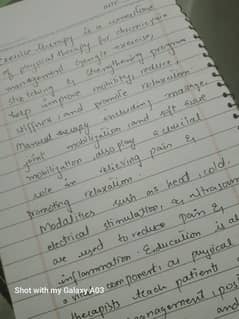 Exercise therapy is a cornerstone
of physical therapy for chronic pain
management. Gentle exercise,
stretching & strengthening program
help improve mobility, reduce
stiffness and promote relaxation
Manual therapy including massage,
joint mobilization and soft tissue
mobilization, also play a crucial
role in relieving pain &
promoting relaxation.
Modalities such as heat, cold,
electrical stimulation, or ultrasound
are used to reduce pain &
inflammation. Education is al
a vital component, as physical
therapists teach patients
management, posi
Shot with my Galaxy A03